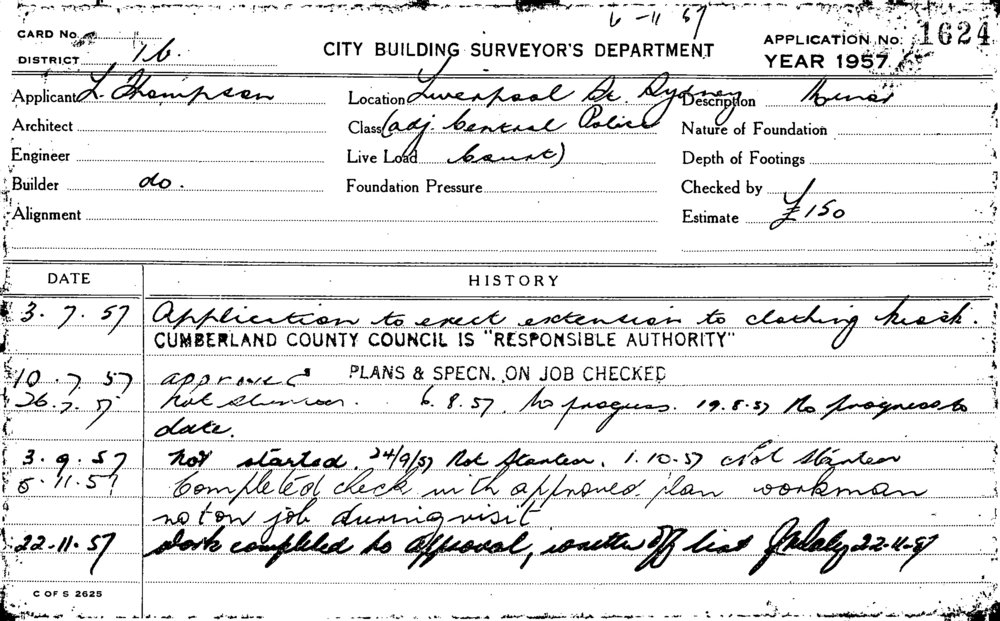 6-11-57
CARD No.
DISTRICT 16.
CITY BUILDING SURVEYOR'S DEPARTMENT
APPLICATION No. 1624
YEAR 1957.
Applicant L. Thompson
Location Liverpool St. Sydney
Description Minor
Architect
Class (adj. Central Police
Nature of Foundation
Engineer
Live Load Court)
Depth of Footings
Builder do.
Foundation Pressure
Checked by
Alignment
Estimate £150
DATE
HISTORY
3. 7. 57 Application to erect extension to clothing kiosk.
CUMBERLAND COUNTY COUNCIL IS "RESPONSIBLE AUTHORITY"
10. 7. 57 approved PLANS & SPECN. ON JOB CHECKED
26. 7. 57 Not 6. 8. 57. No progress. 19. 8. 57 No progress to
date.
3. 9. 57 Not started. 24/9/57 Not Started. 1. 10. 57 Not Started
5. 11. 57 Completed check with approved plan workman
not on job during visit
22-11-57 Work completed to approval, written off list 22-11-57
C OF S 2625